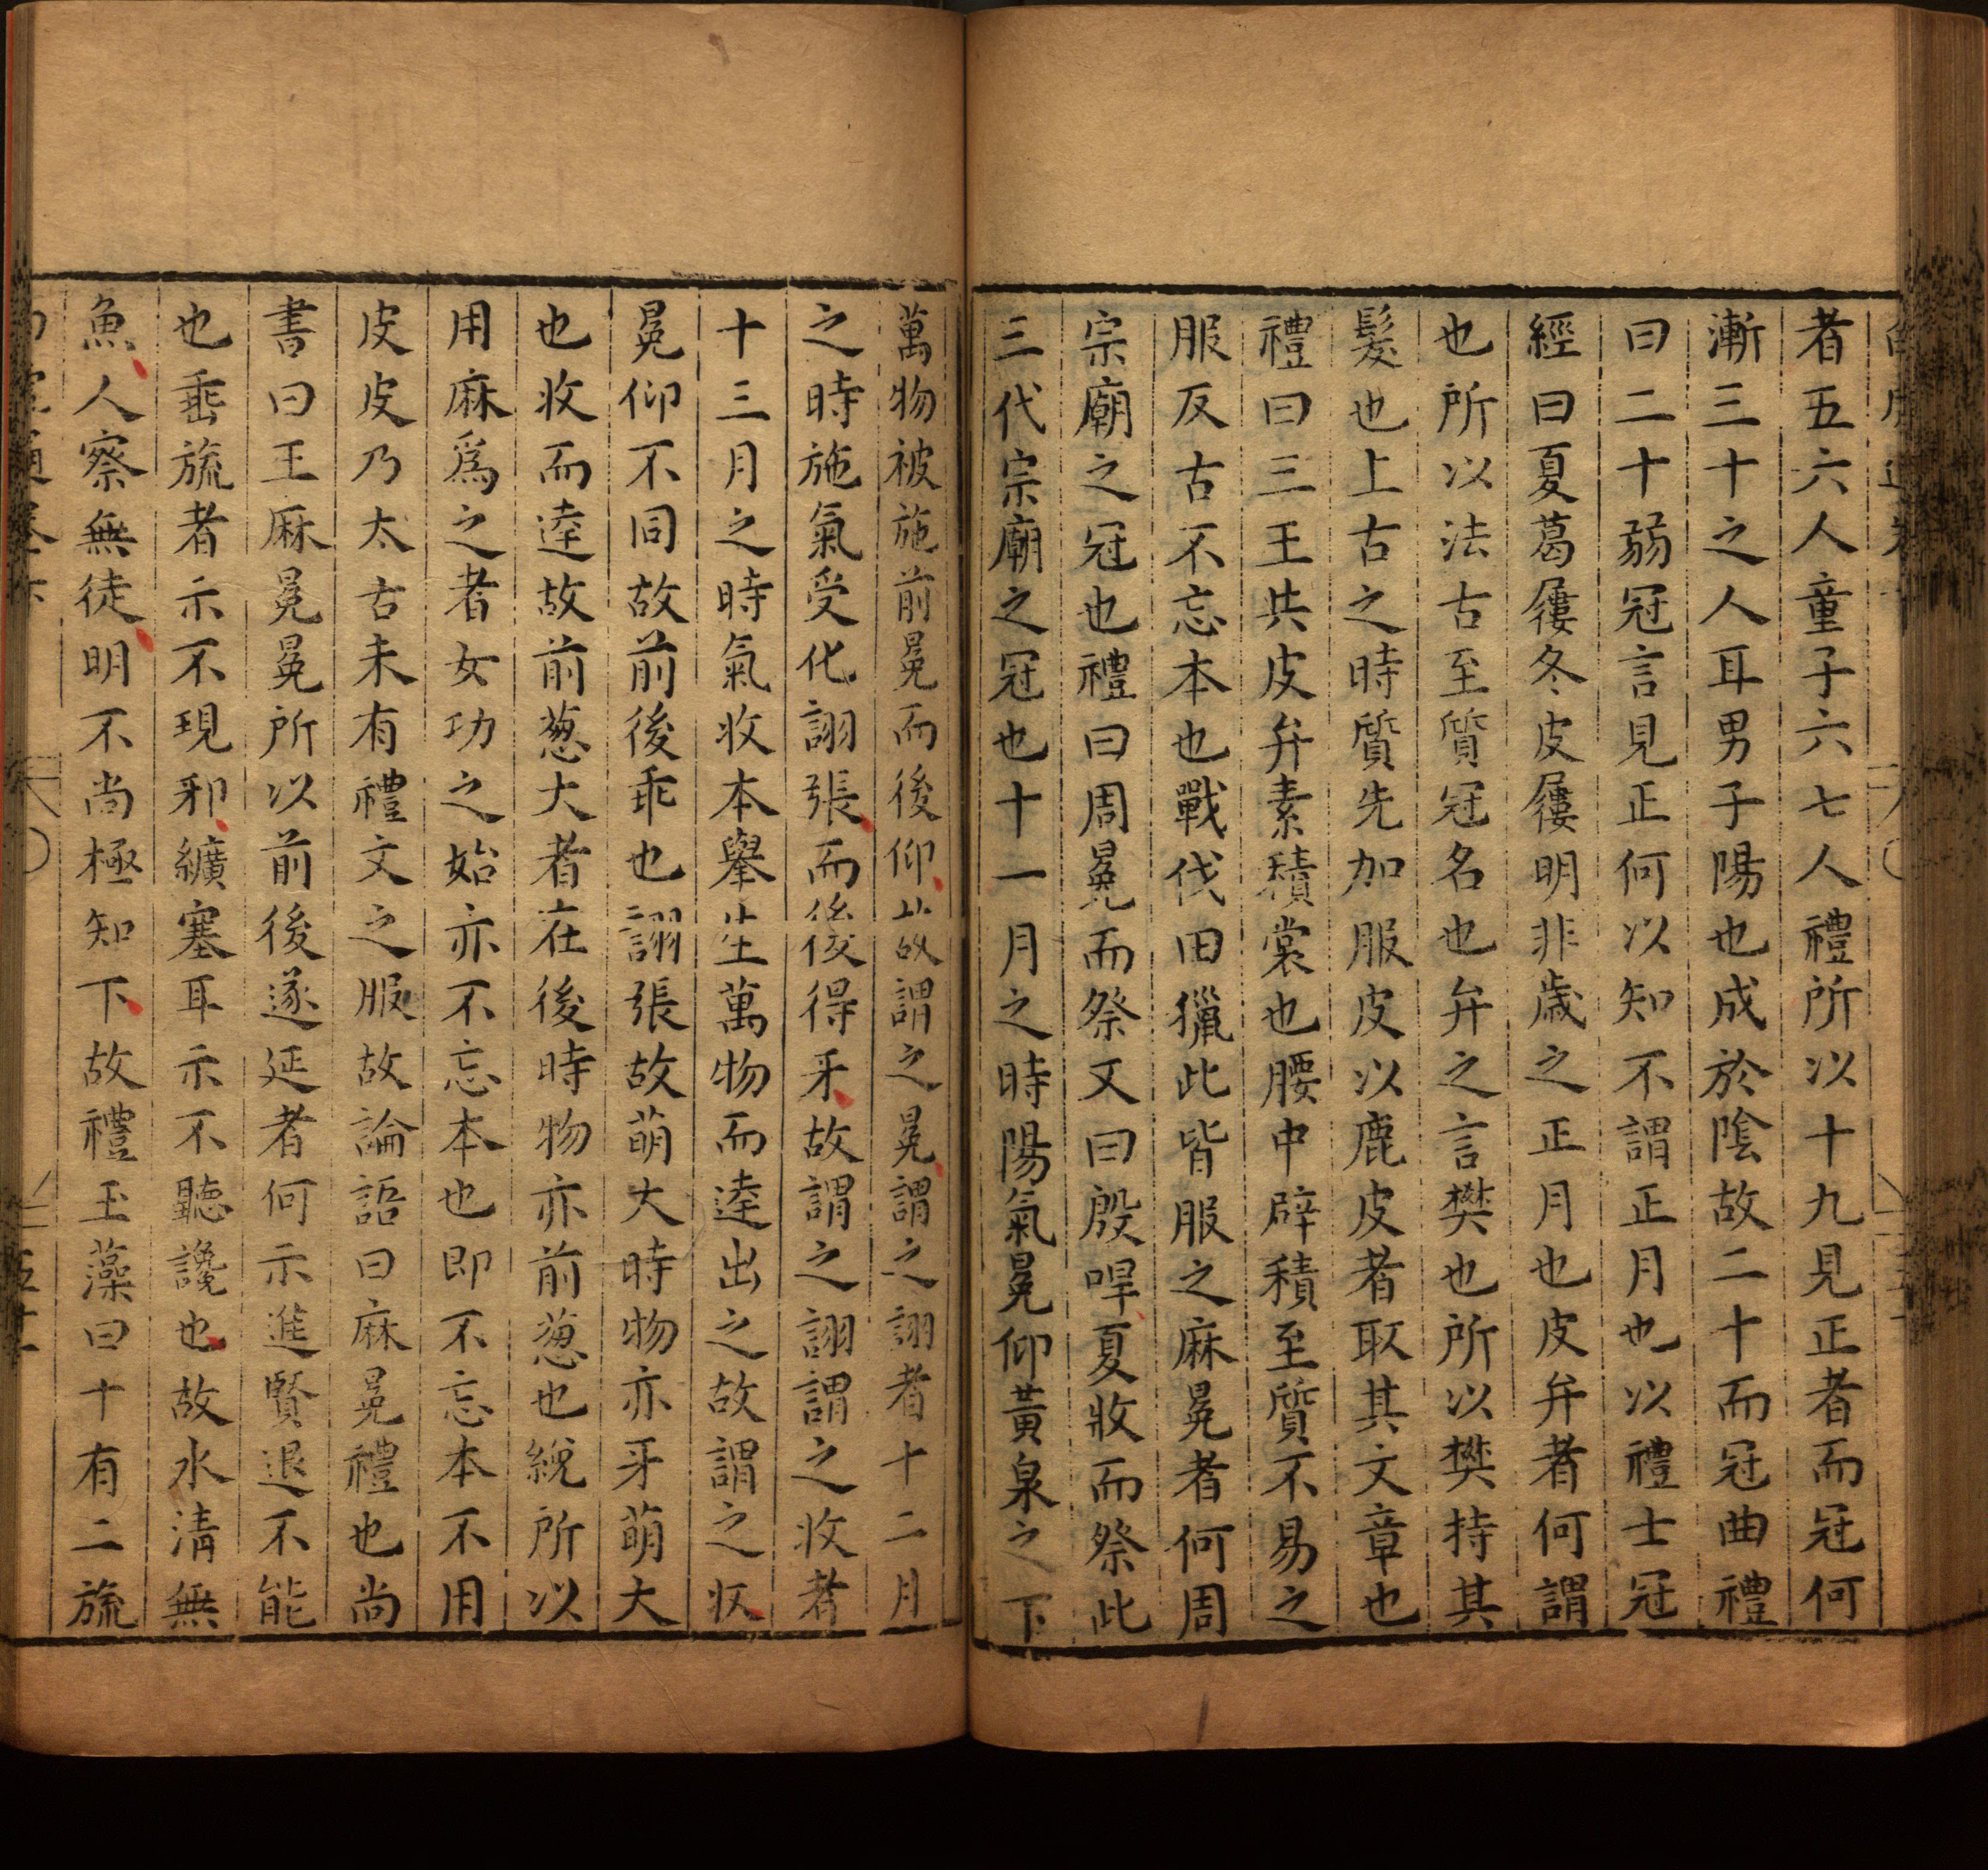 者五六人童子六七人禮所以十九見正者而冠何
漸三十之人耳男子陽也成於陰故二十而冠曲禮
曰二十弱冠言見正何以知不謂正月也以禮士冠
經曰夏葛屨冬皮屨明非歲之正月也皮弁者何謂
也所以法古至質冠名也弁之言樊也所以樊持其
髮也上古之時質先加服皮以鹿皮者取其文章也
禮曰三王共皮弁素積裳也腰中辟積至質不易之
服反古不忘本也戰伐田獵此皆服之麻冕者何周
宗廟之冠也禮曰周冕而祭又曰殷哻夏收而祭此
三代宗廟之冠也十一月之時陽氣冕仰黃泉之下
萬物被施前冕而後仰故謂之冕謂之詡者十二月
之時施氣受化詡張而後得牙故謂之詡謂之收者
十三月之時氣收本舉生萬物而達出之故謂之収
冕仰不同故前後乖也詡張故萌大時物亦牙萌大
也收而達故前葱大者在後時物亦前葱也綩所以
用麻爲之者女功之始亦不忘本也即不忘本不用
皮皮乃太古未有禮文之服故論語曰麻冕禮也尚
書曰王麻冕冕所以前後邃延者何示進賢退不能
也垂旒者示不現邪纊塞耳示不聽讒也故水淸無
魚人察無徒明不尚極知下故禮玉藻曰十有二旒